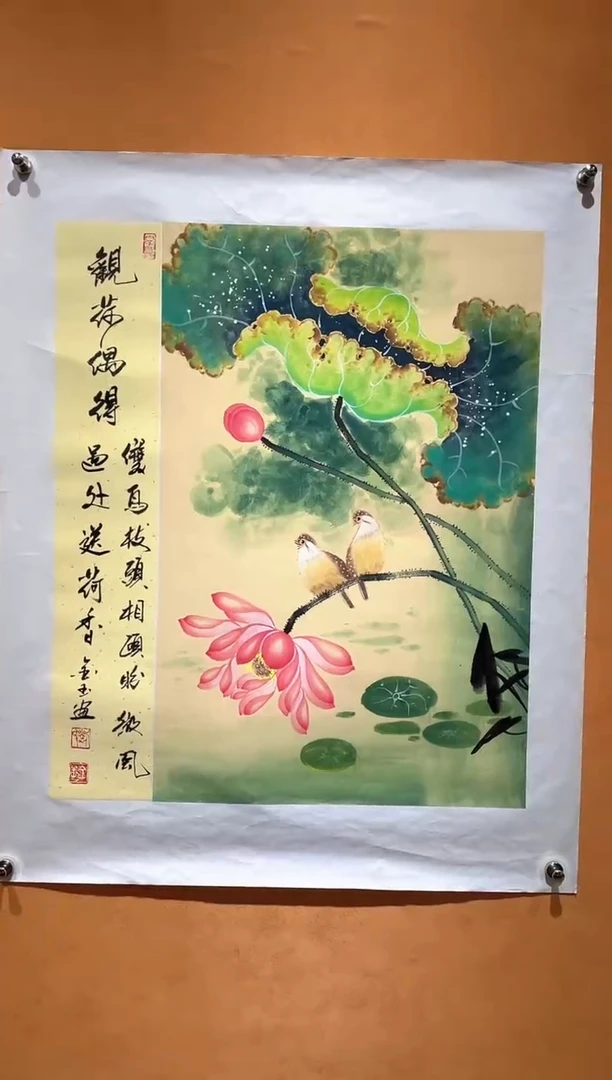 觀荷偶得
雙鳥枝頭相顧盼微風
過处送荷香
金玉畫